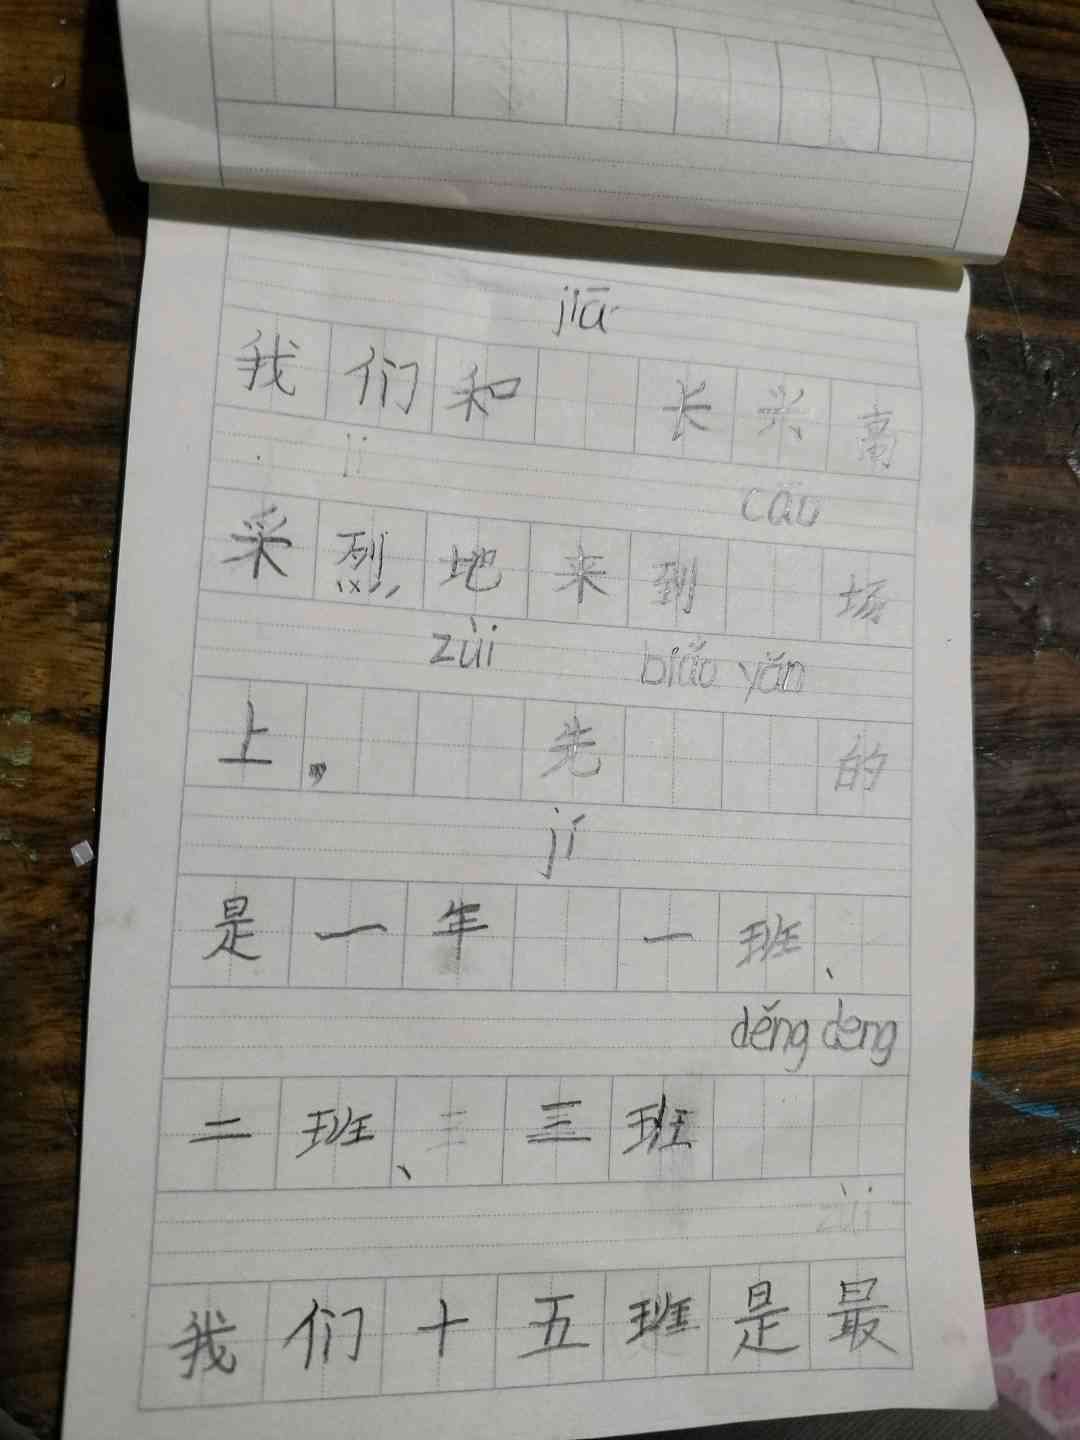 jiā
我们和 长兴高
ji cāo
采烈，地来到 场
zùi biǎo yǎn
上， 先 的
jí
是一年 一班、
děng deng
二班、三三班
zùi
我们十五班是最